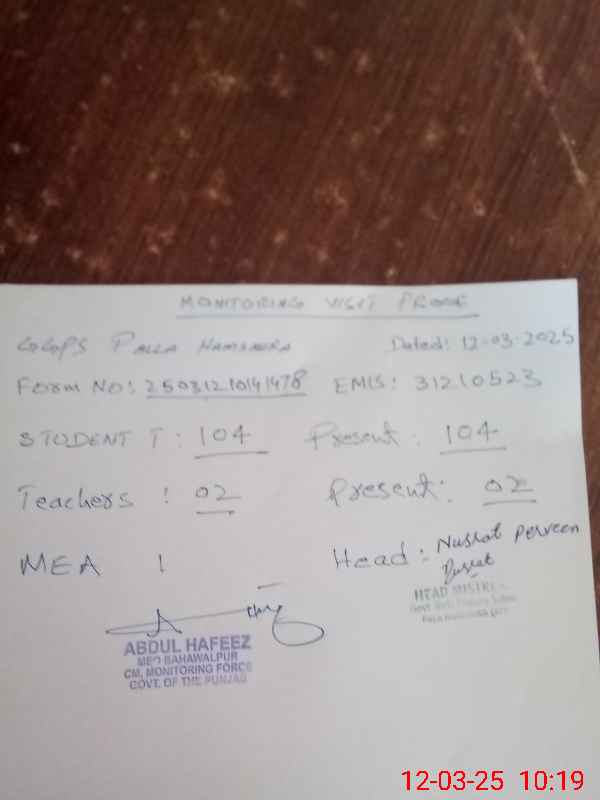 MONITORING VISIT PROOF
GGPS PALLA HAMSAURA Dated: 12-03-2025
Form No: 25031210141478 EMIS: 31210523
STUDENT T: 104 Present: 104
Teachers : 02 Present: 02
MEA : Head: Nusrat Perveen
Nusrat
ABDUL HAFEEZ
MEO BAHAWALPUR
CM, MONITORING FORCE
GOVT. OF THE PUNJAB
HEAD MISTRESS
12-03-25 10:19